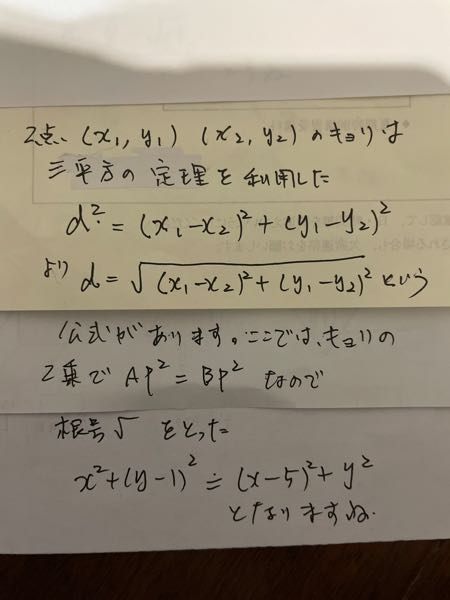 2点、(x₁, y₁) (x₂, y₂) のキョリは
三平方の定理を利用した
d² = (x₁-x₂)²+(y₁-y₂)²
より d = √(x₁-x₂)²+(y₁-y₂)² という
公式があります。ここでは、キョリの
2乗で AP² = BP² なので
根号√ をとった
x²+(y-1)² ≒ (x-5)²+y²
となりますね。